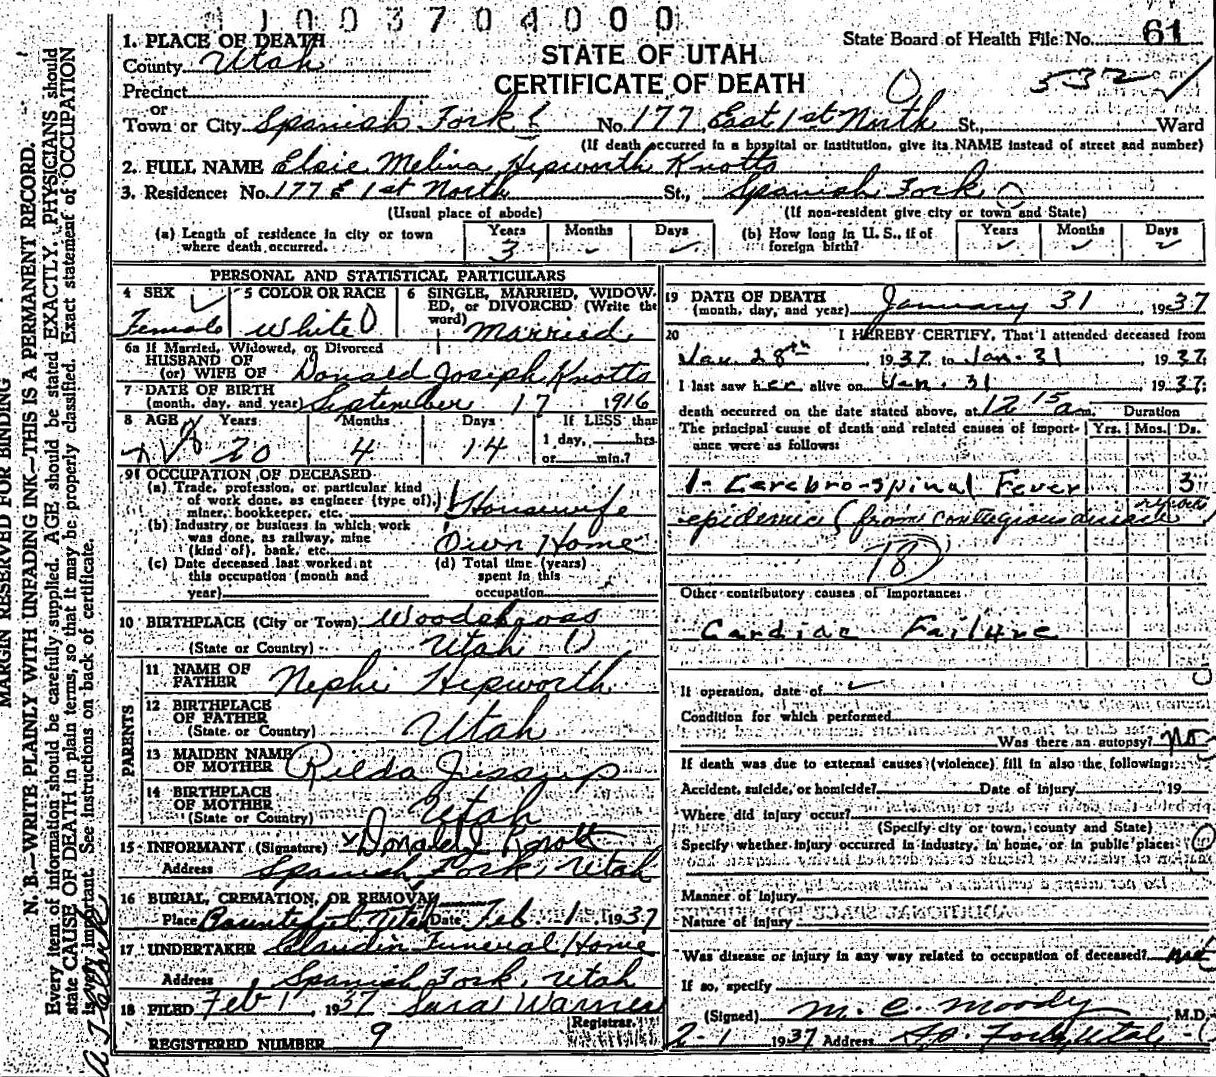 11003704000
1. PLACE OF DEATH
County Utah
Precinct
or
Town or City Spanish Fork
STATE OF UTAH
CERTIFICATE OF DEATH
State Board of Health File No. 61
532 ✓
No. 177 East 1st North St., Ward
(If death occurred in a hospital or institution, give its NAME instead of street and number)
2. FULL NAME Elsie Melina Hepworth Knotts
3. Residence: No. 177 E 1st North St., Spanish Fork
(Usual place of abode) (If non-resident give city or town and State)
(a) Length of residence in city or town where death occurred. Years 3 Months - Days ✓
(b) How long in U. S., if of foreign birth? Years ✓ Months ✓ Days ✓
PERSONAL AND STATISTICAL PARTICULARS
4 SEX Female
5 COLOR OR RACE White
6 SINGLE, MARRIED, WIDOWED, or DIVORCED (Write the word) Married
6a If Married, Widowed, or Divorced
HUSBAND OF
(or) WIFE OF Donald Joseph Knotts
7 DATE OF BIRTH
(month, day, and year) September 17 1916
8 AGE Years 20 Months 4 Days 14 If LESS than
1 day, hrs.
or min.?
9 OCCUPATION OF DECEASED
(a) Trade, profession, or particular kind
of work done, as engineer (type of),
miner, bookkeeper, etc. Housewife
(b) Industry or business in which work
was done, as railway, mine
(kind of), bank, etc. Own Home
(c) Date deceased last worked at
this occupation (month and
year)
(d) Total time (years)
spent in this
occupation
10 BIRTHPLACE (City or Town) Woodscross
(State or Country) Utah
PARENTS
11 NAME OF
FATHER Nephi Hepworth
12 BIRTHPLACE
OF FATHER
(State or Country) Utah
13 MAIDEN NAME
OF MOTHER Rilda Jessop
14 BIRTHPLACE
OF MOTHER
(State or Country) Utah
15 INFORMANT (Signature) x Donald J Knott
Address Spanish Fork, Utah
16 BURIAL, CREMATION, OR REMOVAL
Place Bountiful Utah Date Feb 1 1937
17 UNDERTAKER Claudin Funeral Home
Address Spanish Fork, Utah
18 FILED Feb 1, 1937 Sara Warner
Registrar.
REGISTERED NUMBER 9
19 DATE OF DEATH
(month, day, and year) January 31 1937
20 I HEREBY CERTIFY, That I attended deceased from
Jan. 28th 1937 to Jan. 31 1937;
I last saw her alive on Jan. 31 1937;
death occurred on the date stated above, at 12 15 a m. Duration
The principal cause of death and related causes of importance were as follows: Yrs. Mos. Ds.
1- Cerebro-spinal Fever 3
epidemic (from contagious disease
78
Other contributory causes of importance:
Cardiac Failure
If operation, date of ✓
Condition for which performed
Was there an autopsy? No
If death was due to external causes (violence) fill in also the following:
Accident, suicide, or homicide? Date of injury 19
Where did injury occur?
(Specify city or town, county and State)
Specify whether injury occurred in industry, in home, or in public place:
Manner of injury
Nature of injury
Was disease or injury in any way related to occupation of deceased? not
If so, specify
(Signed) M. C. Moody M.D.
2-1 1937 Address Sp. Fork, Utah
MARGIN RESERVED FOR BINDING
N. B.—WRITE PLAINLY WITH UNFADING INK—THIS IS A PERMANENT RECORD.
Every item of information should be carefully supplied. AGE should be stated EXACTLY. PHYSICIANS should
state CAUSE OF DEATH in plain terms, so that it may be properly classified. Exact statement of OCCUPATION
is very important. See instructions on back of certificate.